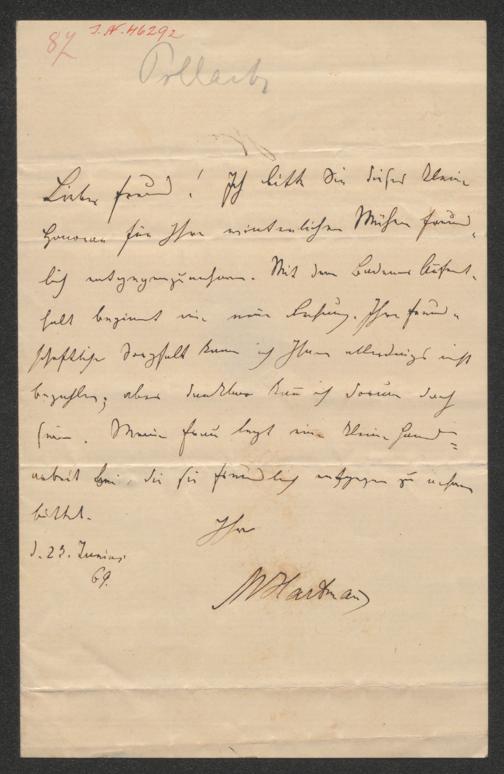 87 J.N. 46292
Pollack
Lieber Freund! Ich bitte Sie dieses kleine
Honorar für Ihre winterlichen Mühen freund-
lich entgegenzunehmen. Mit dem Badener Aufent-
halt beginnt eine neue Rechnung. Ihre freund-
schaftliche Sorgfalt kann ich Ihnen allerdings nicht
bezahlen, aber dankbar kann ich darum doch
sein. Meine Frau legt eine kleine Hand-
arbeit bei, die sie freundlich entgegen zu nehmen
bittet.
Ihr
d. 23. Junius
69.
MHartmann